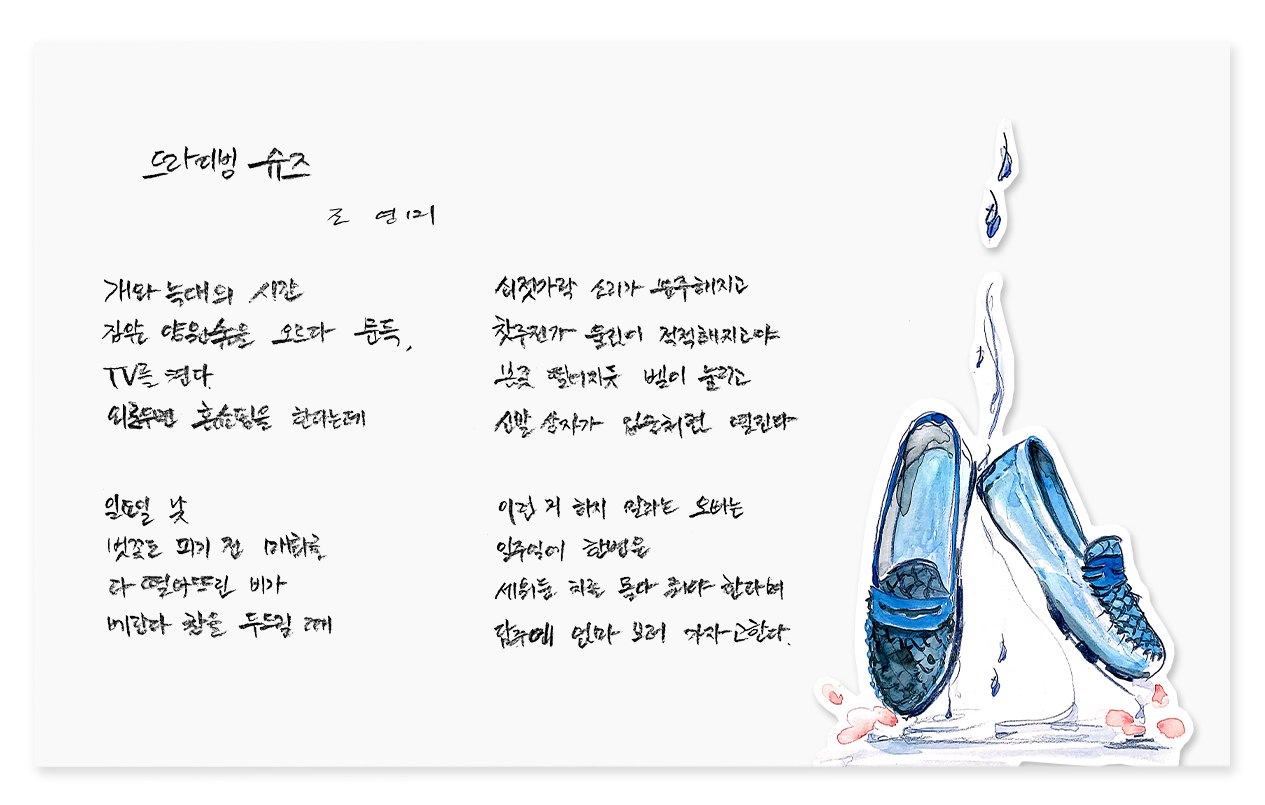 드라이빙 슈즈
조 연 미
개와 늑대의 시간
오르다 문득,
TV를 켠다
외로우면 홈쇼핑을 한다는데
일요일 낮
벚꽃도 피기 전 매화를
다 떨어뜨린 비가
베란다 창을 두드릴 때
쇠젓가락 소리가 분주해지고
찻주전가 물긷이 적적해지고야
본죽 떨어지듯 벨이 눌리고
신발 상자가 입술처럼 열린다
이런 거 하지 말라는 오빠는
일주일에 한번은
세워둔 차를 몰아 줘야 한다며
담주에 엄마 보러 가자고한다.